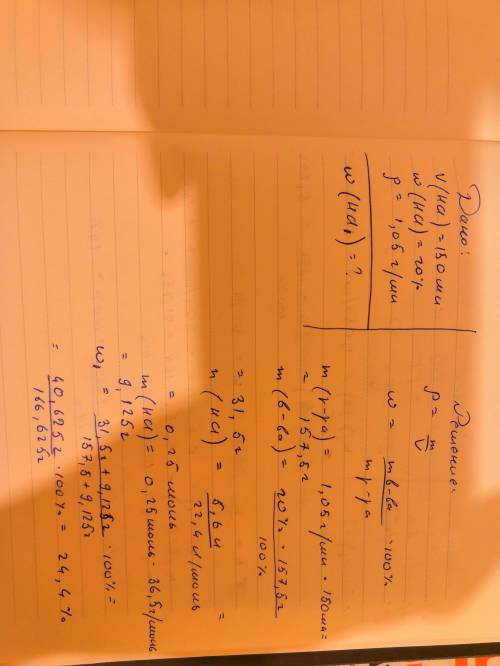 Дано:
V(HCl) = 150 мл
w(HCl) = 20%
ρ = 1,05 г/мл
w(HCl₁) = ?
Решение:
ρ = m/V
w = mв-ва/mр-ра · 100%
m(р-ра) = 1,05 г/мл · 150 мл =
= 157,5 г
m(в-ва) = 20% · 157,5 г/100%
= 31,5 г
n(HCl) = 5,6 л/22,4 л/моль =
= 0,25 моль
m(HCl) = 0,25 моль · 36,5 г/моль
= 9,125 г
w₁ = 31,5 г + 9,125 г/157,5 + 9,125 г · 100% =
= 40,625 г/166,625 г · 100% = 24,4%